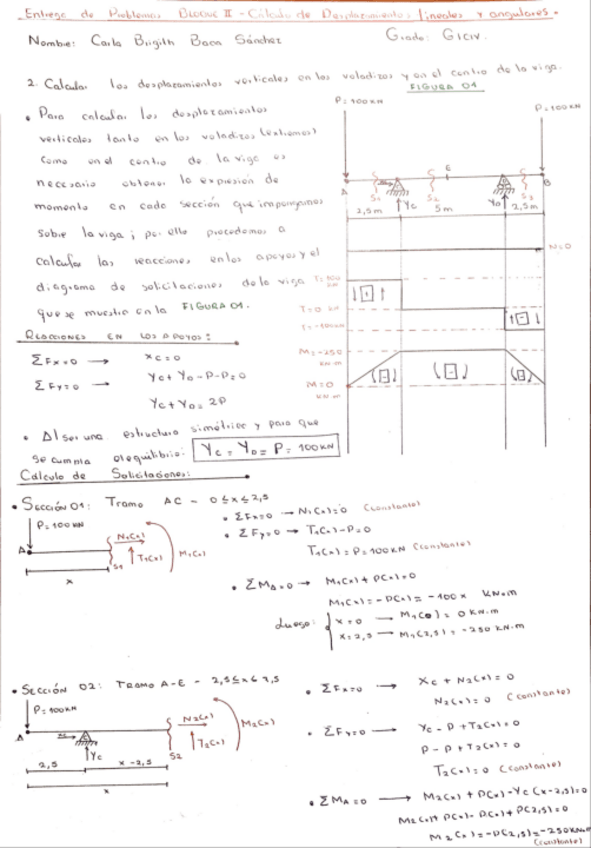 Entrega de Problemas BLOQUE II - Cálculo de Desplazamientos lineales y angulares.
Nombre: Carla Brigith Baca Sánchez
Grado: GICIV.
2. Calcular los desplazamientos verticales en los voladizos y en el centro de la viga.
FIGURA 01
• Para calcular los desplazamientos
verticales tanto en los voladizos (extremos)
como en el centro de la viga es
necesario obtener la expresión de
momento en cada sección que impongamos
sobre la viga; por ello procedemos a
calcular las reacciones en los apoyos y el
diagrama de solicitaciones de la viga
que se muestra en la FIGURA 01.
P=100KN
P=100KN
A
S1
Yc
S2
E
YD
S3
B
2,5m
5m
2,5m
N=0
T=100
KN
T=0 KN
T=-100KN
M=-250
KN.m
M=0
KN.m
REACCIONES EN LOS APOYOS:
ΣFx=0 → Xc=0
ΣFy=0 → Yc + YD - P - P=0
Yc + YD = 2P
• Al ser una estructura simétrica y para que
se cumpla el equilibrio: Yc = YD = P = 100KN
Cálculo de Solicitaciones:
• SECCIÓN 01: Tramo AC - 0≤x≤2,5
P=100KN
A
N1(x)
T1(x)
M1(x)
S1
x
• ΣFx=0 → N1(x)=0 (constante)
• ΣFy=0 → T1(x)-P=0
T1(x)=P=100KN (constante)
• ΣMA=0 → M1(x)+P(x)=0
M1(x)=-P(x)=-100x KN.m
Luego: x=0 → M1(0)=0 KN.m
x=2,5 → M1(2,5)=-250 KN.m
• SECCIÓN 02: TRAMO A-E - 2,5≤x≤7,5
P=100KN
A
Yc
N2(x)
T2(x)
M2(x)
S2
2,5
x-2,5
x
• ΣFx=0 → Xc + N2(x)=0
N2(x)=0 (constante)
• ΣFy=0 → Yc - P + T2(x)=0
P - P + T2(x)=0
T2(x)=0 (constante)
• ΣMA=0 → M2(x)+P(x)-Yc(x-2,5)=0
M2(x)+P(x)-P(x)+P(2,5)=0
M2(x)=-P(2,5)=-250KN.m
(constante)